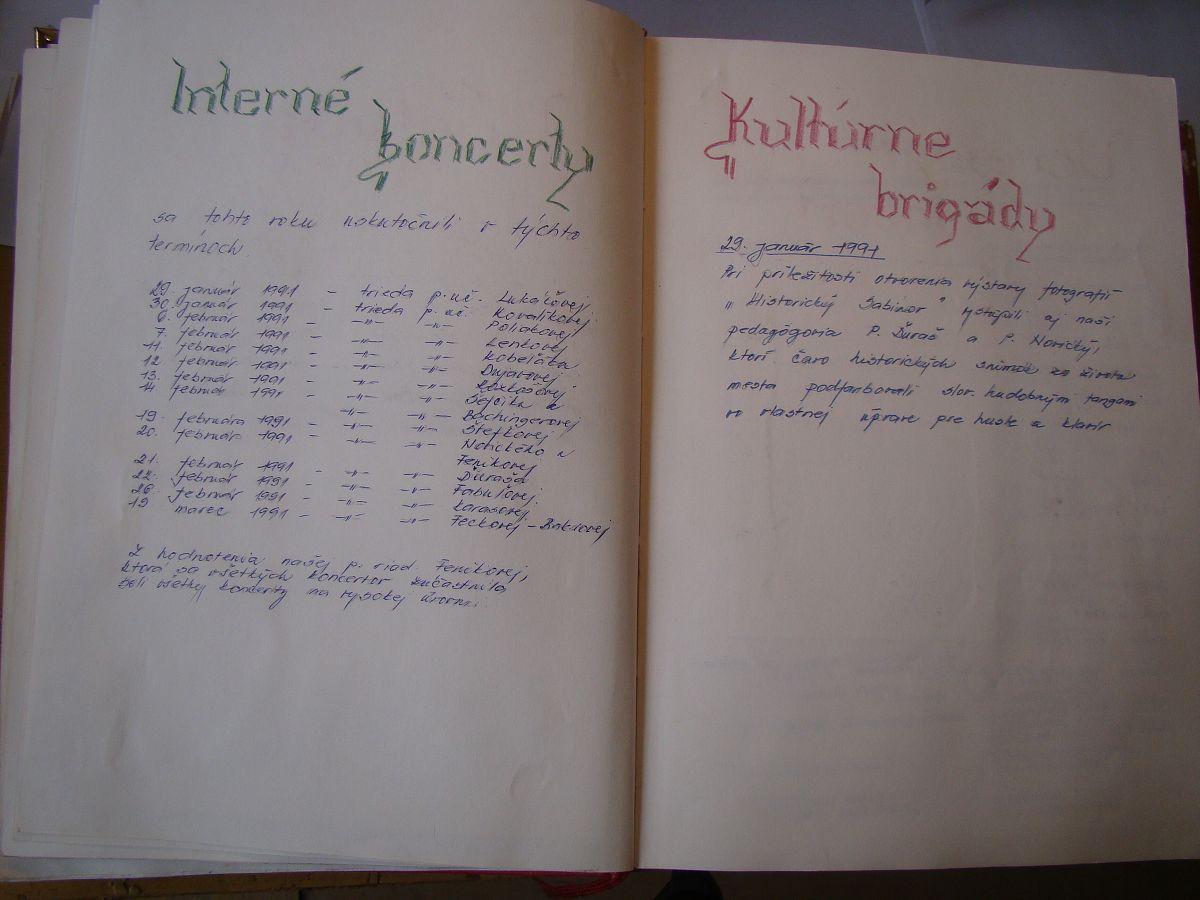 Interné
koncerty
sa tohto roku uskutočnili v týchto
termínoch
29. január 1991 – trieda p. uč. Lukáčovej
30. január 1991 – trieda p. uč. Kovalíkovej
6. február 1991 – –"– –"– Poliakovej
7. február 1991 – –"– –"– Lenkovej
11. február 1991 – –"– –"– Kobeľáka
12. február 1991 – –"– –"– Dujavovej
13. február 1991 – –"– –"–
14. február 1991 – –"– –"– Sejčika a
Bachingerovej
19. februára 1991 –"– –"– Štefkovej
20. február 1991 –"– –"– Norického a
Feníkovej
21. február 1991 – –"– –"– Ďuraša
22. február 1991 – –"– –"– Fabuľovej
26. február 1991 – –"– –"– Karasovej
19 marec 1991 – –"– –"– Feckovej –
Z hodnotenia našej p. riad. Feníkovej,
ktorá sa všetkých koncertov zučastnila
boli všetky koncerty na vysokej úrovni.
Kultúrne
brigády
29. január 1991
Pri príležitosti otvorenia výstavy fotografií
„Historický Sabinov" vystúpili aj naši
pedagógovia P. Ďuraš a P. Norický,
ktorí čaro historických snímok zo života
mesta podfarbovali slov. hudobným tangami
vo vlastnej úprave pre husle a klavír